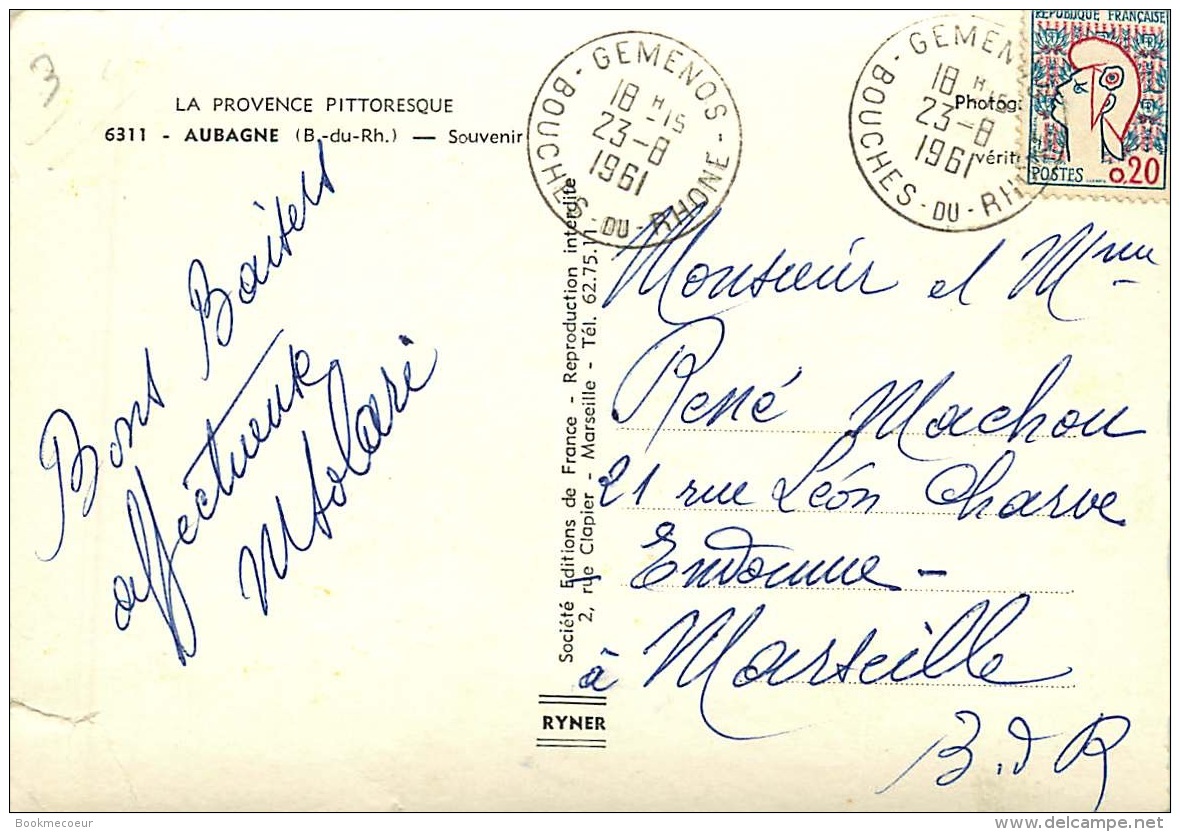 3
LA PROVENCE PITTORESQUE
6311 - AUBAGNE (B.-du-Rh.) — Souvenir
Bons Baisers
affectueux
GEMENOS
18 H -15
23-8
1961
BOUCHES-DU-RHONE
GEMEN
18 H 15
23-8
1961
BOUCHES-DU-RH
Photog
vérit
REPUBLIQUE FRANÇAISE
POSTES 0,20
Société Editions de France - Reproduction interdite
2, rue Clapier - Marseille - Tél. 62.75.11
RYNER
Monsieur et Mme
René Machou
21 rue Léon Charve
Endoume -
à Marseille
B. d R
Bookmecoeur
delcampe.net